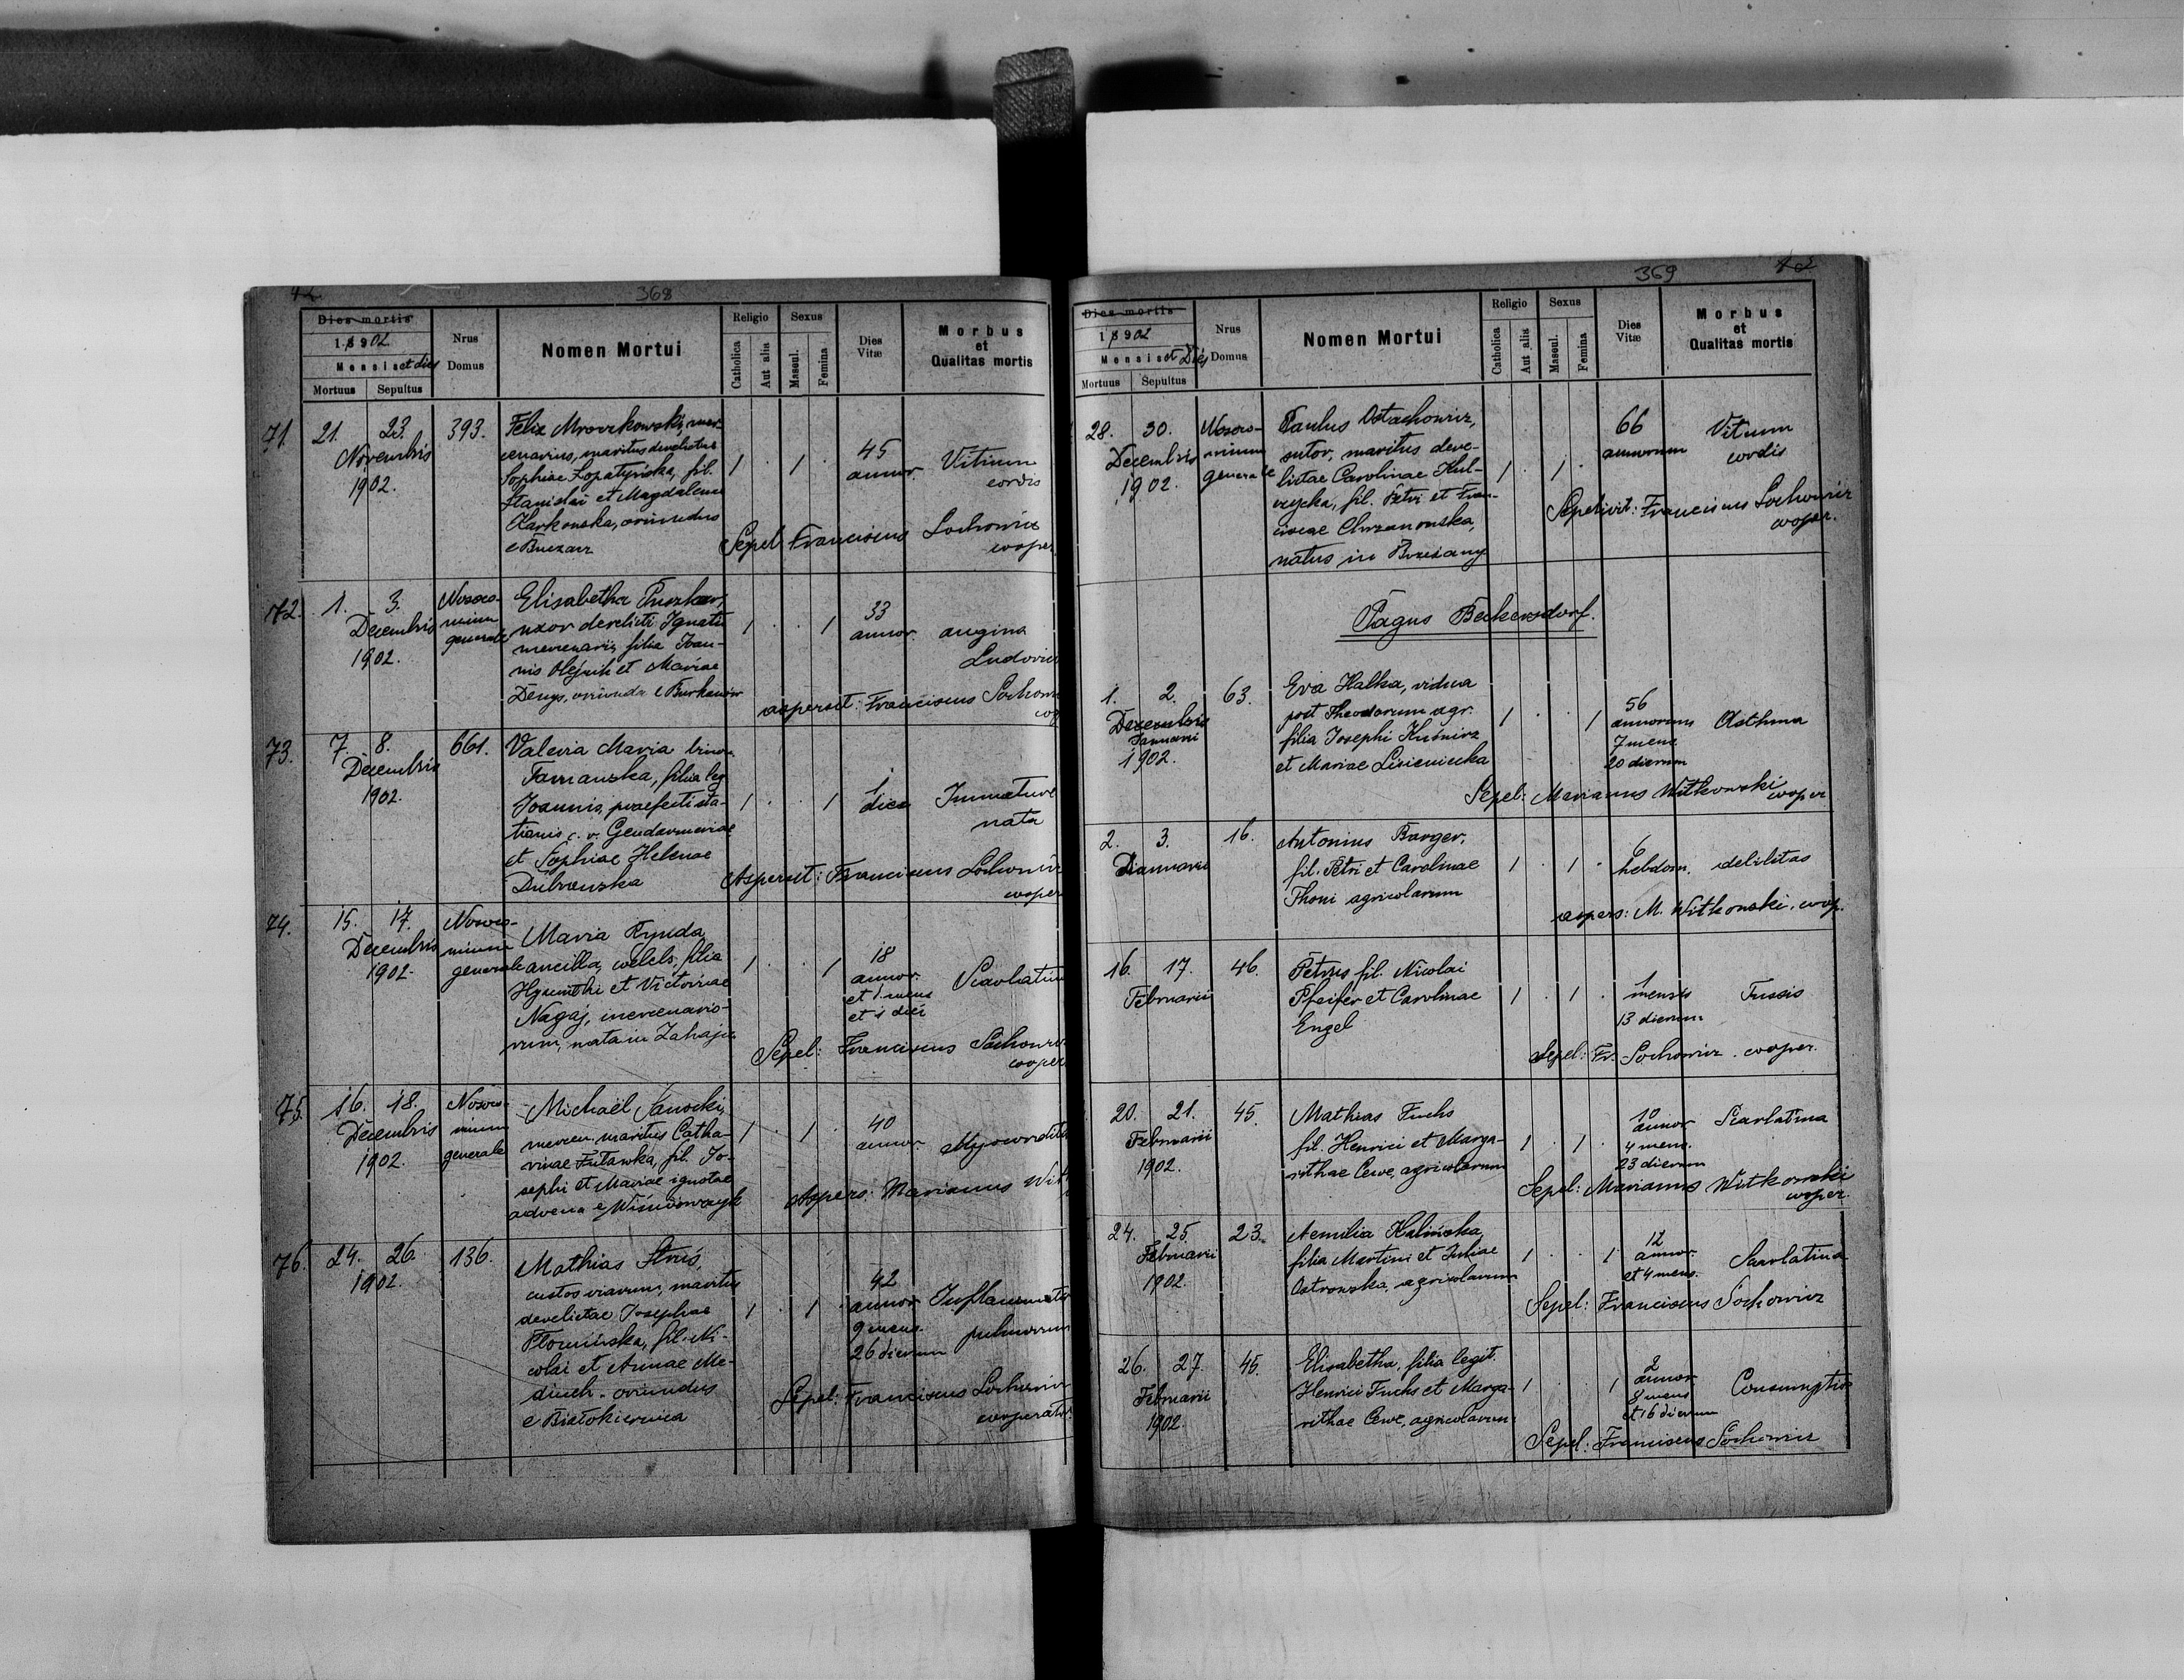 42
368
Dies mortis
1902
Mensis et dies
Mortuus Sepultus
Nrus Domus
Nomen Mortui
Religio
Catholica
Aut alia
Sexus
Mascul.
Femina
Dies Vitæ
Morbus
et
Qualitas mortis
71. 21. 23. 393.
Novembris
1902.
Felix Mroczkowski, mer-
cenarius, maritus derelictus
Sophiae Łopatyńska, fil.
Stanislai et Magdalena
oriundus
e
1 . 1 .
45
annor.
Vitium
cordis
Sepel. Franciscus Sochowicz
cooper
72. 1. 3.
Decembris
1902.
Nosoco-
mium
generale
Elisabetha
uxor derelicti Ignatii
mercenarii, filia Ioan-
nis Olejnik et Mariae
Denys, oriunda e Burkanów
1 . . 1
33
annor.
angina
Ludovici
aspersit: Franciscus Sochow
73. 7. 8. 661.
Decembris
1902.
Valeria Maria
filia leg
Joannis, praefecti sta-
tionis c. r. Gendarmeriae
et Sophiae Helenae
1 . . 1
1
dies
Immature
nata
Aspersit: Franciscus Sochowicz
cooper
74. 15. 17.
Decembris
1902.
Nosoco-
mium
generale
Maria Rynda
ancilla, coelebs, filia
Hyacinthi et Victoriae
Nagaj, mercenario-
rum, nata in Zahajce
1 . . 1
18
annor.
et 1 mens
et 1 diei
Scarlatina
Sepel: Franciscus Sochowicz
cooper
75. 16. 18.
Decembris
1902.
Nosoco-
mium
generale
Michaël Sanocki,
mercen. maritus Catha-
rinae fil. Jo-
sephi et Mariae ignotae
advena e Wiśniowczyk
1 . 1 .
40
annor.
Myocarditis
Aspers: Marianus Wit
76. 24. 26. 136.
1902.
Mathias Struś,
custos viarum, maritus
derelictae Josephae
fil. Ni-
colai et Annae Me-
dinch. oriundus
e Białokiernica
1 . 1
42
annor
9 mens.
26 dierum
Inflammatio
pulmorum
Sepel: Franciscus Sochowicz
cooperator
369
Dies mortis
1902
Mensis et Dies
Mortuus Sepultus
Nrus
Domus
Nomen Mortui
Religio
Catholica
Aut alia
Sexus
Mascul.
Femina
Dies Vitæ
Morbus
et
Qualitas mortis
28. 30.
Decembris
1902.
Nosoco-
mium
generale
Paulus Ostachowicz,
sutor, maritus dere-
lictae Carolinae Kul-
czycka, fil. Petri et Fran-
ciscae Chrzanowska,
natus in Brzeżany
1 . 1 .
66
annorum
Vitium
cordis
Sepelivit: Franciscus Sochowicz
cooper.
Pagus Beckersdorf.
1. 2. 63.
Decembris
Januarii
1902.
Eva Halka, vidua
post Theodorum agr.
filia Josephi Kuśnirz
et Mariae Lisieniecka
1 . . 1
56
annorum
7 mens
20 dierum
Asthma
Sepel: Marianus Witkowski
cooper
2. 3. 16.
Januarii
Antonius Barger,
fil. Petri et Carolinae
Thoni agricolarum
1 . 1 .
6
hebdom.
debilitas
aspers: M. Witkowski, coop.
16. 17. 46.
Februarii
Petrus fil. Nicolai
Pfeifer et Carolinae
Engel
1 . 1 .
1
mensis
13 dierum
Tussis
Sepel: Fr. Sochowicz. cooper.
20. 21. 45.
Februarii
1902.
Mathias Fuchs
fil. Henrici et Marga-
rithae Cewe, agricolarum
1 . 1 .
10
annor
4 mens.
23 dierum
Scarlatina
Sepel: Marianus Witkowski
cooper.
24. 25. 23.
Februarii
1902.
Aemilia Kalińska,
filia Martini et Juliae
Ostrowska, agricolarum
1 . . 1
12
annor.
et 4 mens.
Scarlatina
Sepel: Franciscus Sochowicz
26. 27. 45.
Februarii
1902.
Elisabetha, filia legit.
Henrici Fuchs et Marga-
rithae Cewe, agricolarum
1 . . 1
2
annor
8 mens
et 16 dierum
Consumptio
Sepel: Franciscus Sochowicz